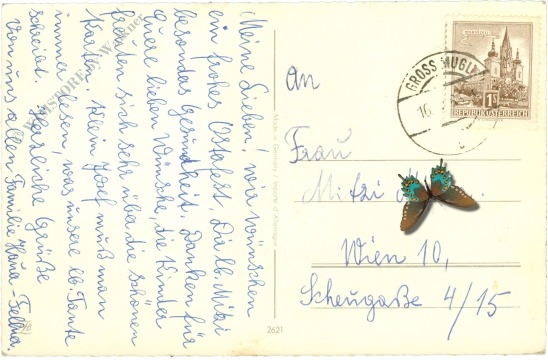 Meine Lieben! wir wünschen
ein frohes Osterfest Dir lb. Mitzi
besonders Gesundheit. Danken für
eure lieben Wünsche, die Kinder
freuten sich sehr über die schönen
Karten. Klein Josef muß man
immer lesen, was unsere lb. Tante
schreibt. Herzliche Grüße
von uns allen Familie Hans
An
Frau
Mitzi M
Wien 10,
Scheugaße 4/15
GROSS MUGL
16
1S
REPUBLIK ÖSTERREICH
Made in Germany
2621